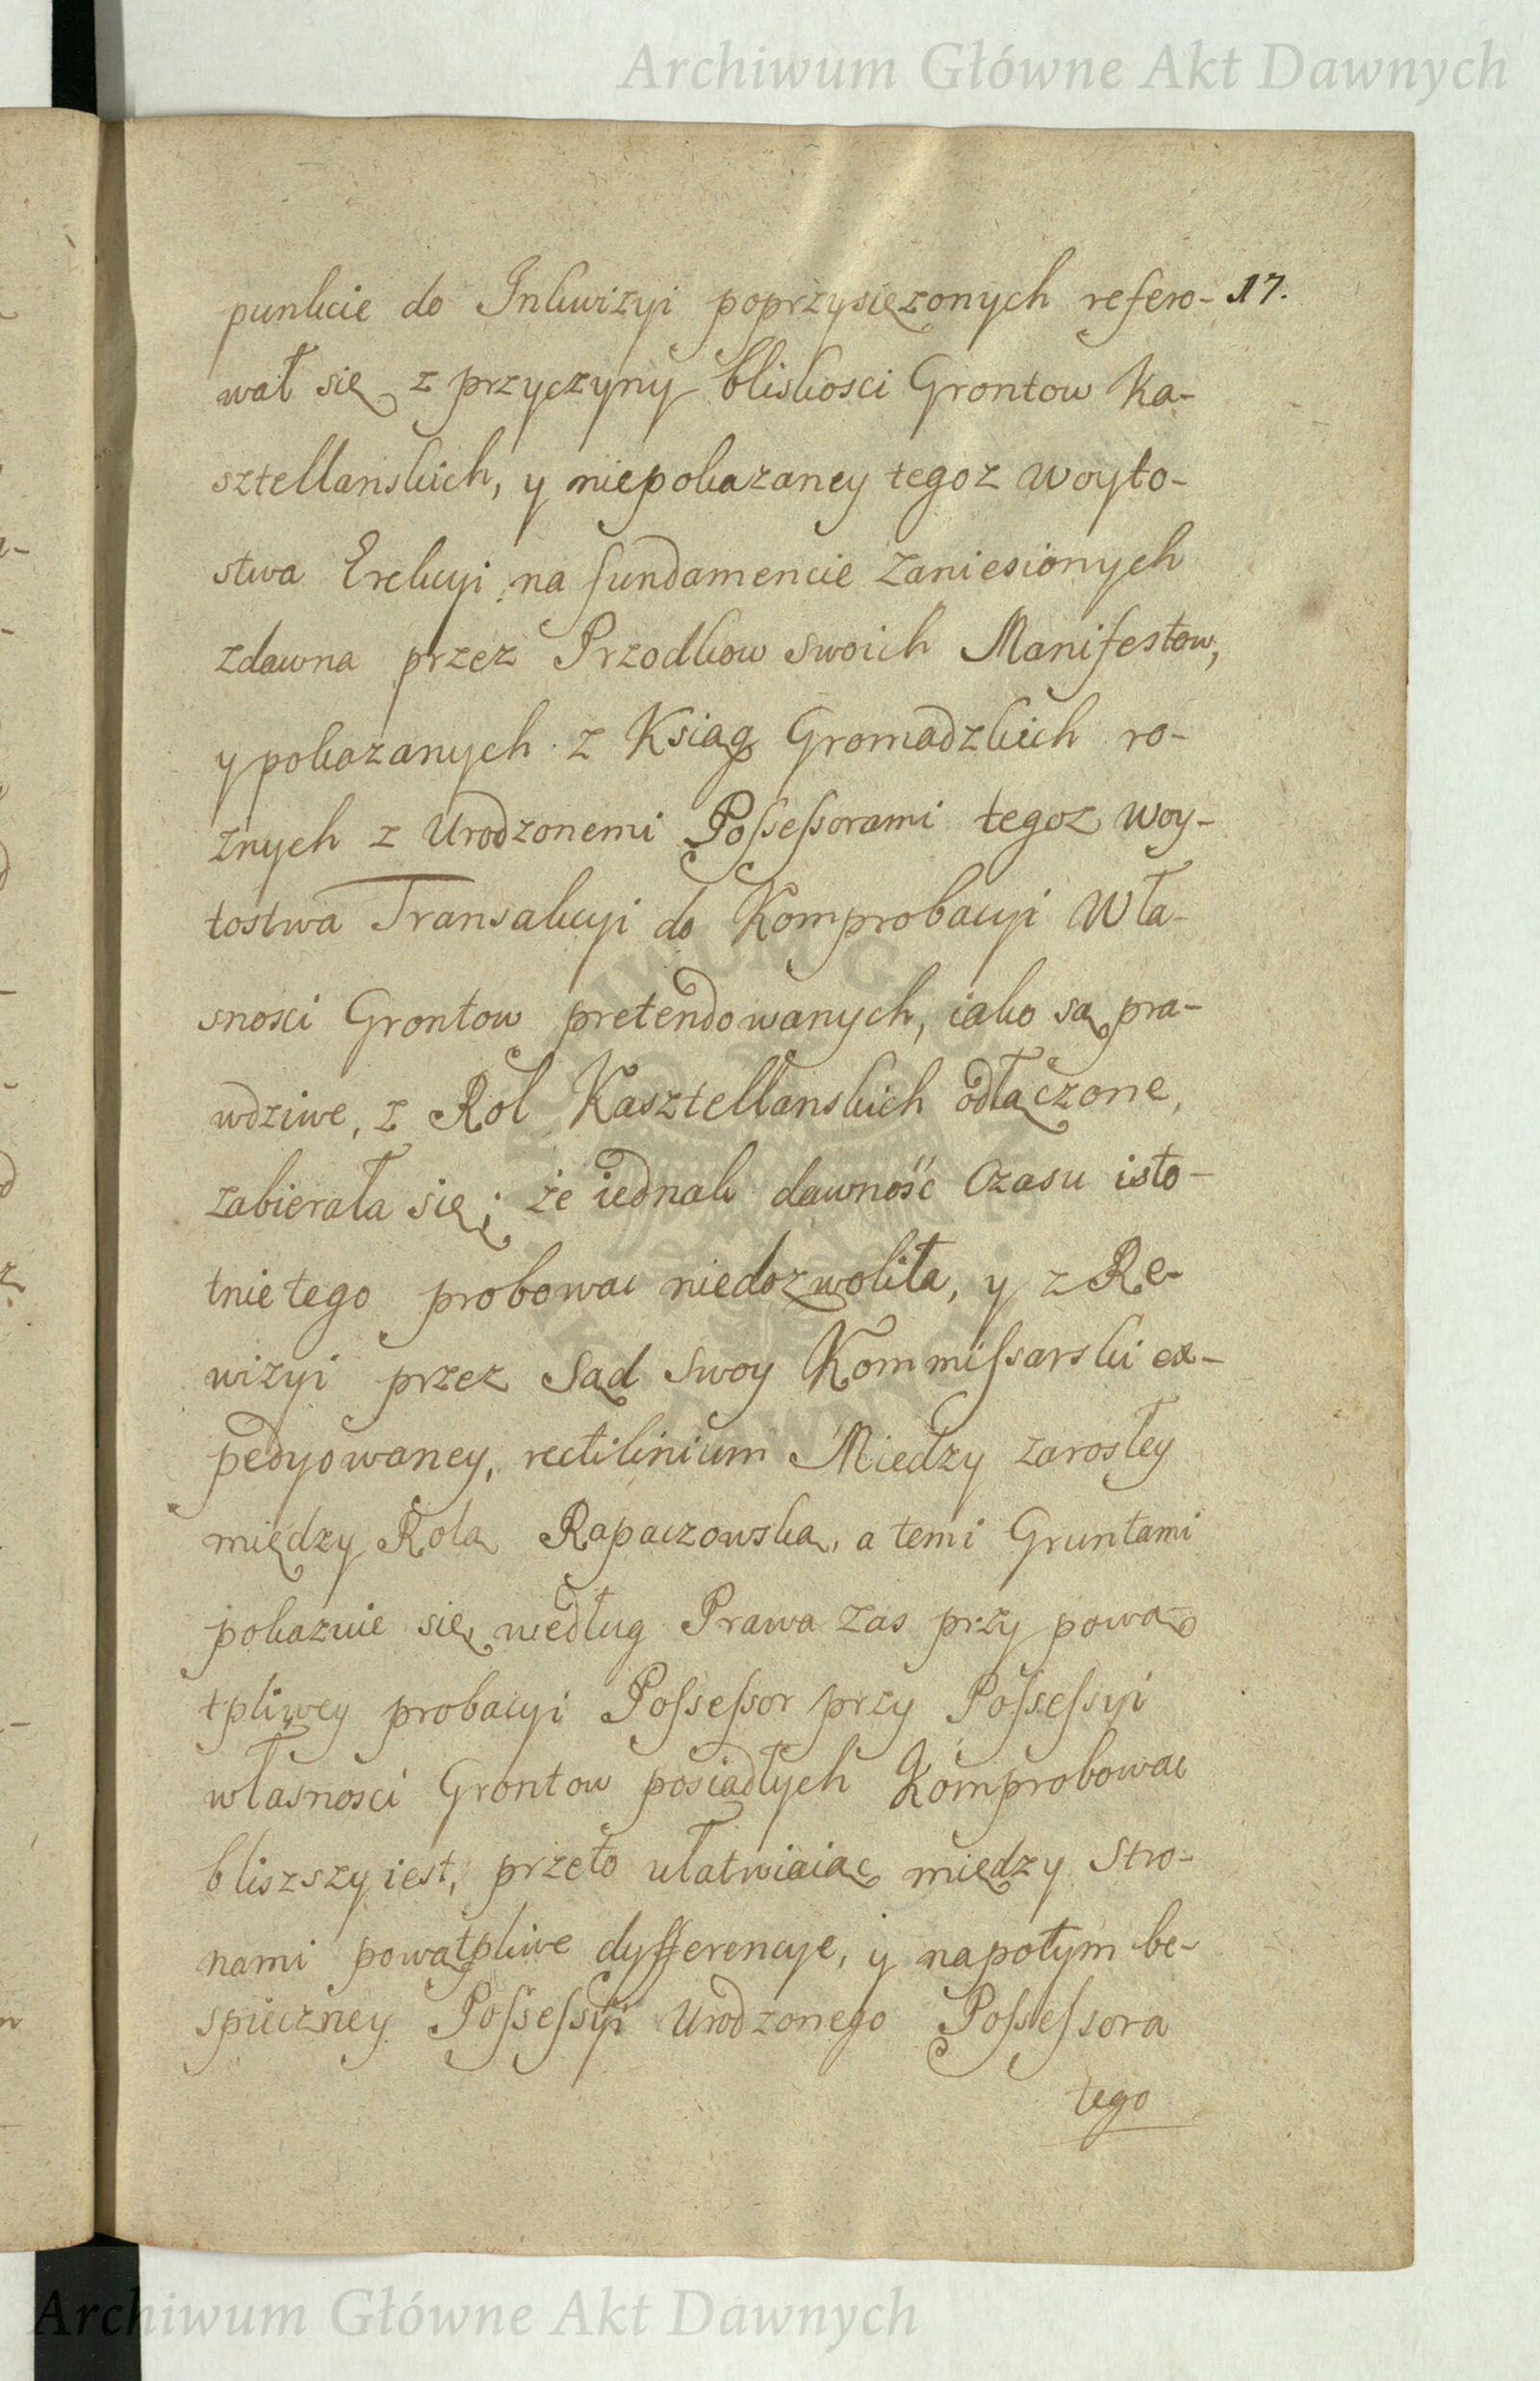 Archiwum Główne Akt Dawnych
punkcie do Inkwizyi poprzysięzonych refero- 17.
wał się z przyczyny bliskosci Grontow Ka-
sztellanskich, y niepokazaney tegoz Woyto-
stwa Erekcyi na fundamencie zaniesionych
zdawna przez Przodkow swoich Manifestow,
y pokazanych z Ksiąg Gromadzkich ro-
znych z Urodzonemi Possessorami tegoz Woy-
tostwa Transakcyi do Komprobacyi Wła-
snosci Grontow pretendowanych, iako są pra-
wdziwe, z Rol Kasztellanskich odłączone,
zabierała się; że iednak dawność Czasu isto-
tnie tego probowac niedozwoliła, y z Re-
wizyi przez Sąd swoy Kommissarski ex-
pedyowaney, rectilinium Miedzy zarosłey
między Rolą Rapaczowską, a temi Gruntami
pokazuie się, według Prawa zas przy pową-
tpliwey probacyi Possessor przy Possessyi
własnosci Grontow posiadłych Komprobowac
bliszszy iest, przeto ułatwiaiąc między Stro-
nami powątpliwe dyfferencye, y napotym be-
spieczney Possessyi Urodzonego Possessora
tego
Archiwum Główne Akt Dawnych